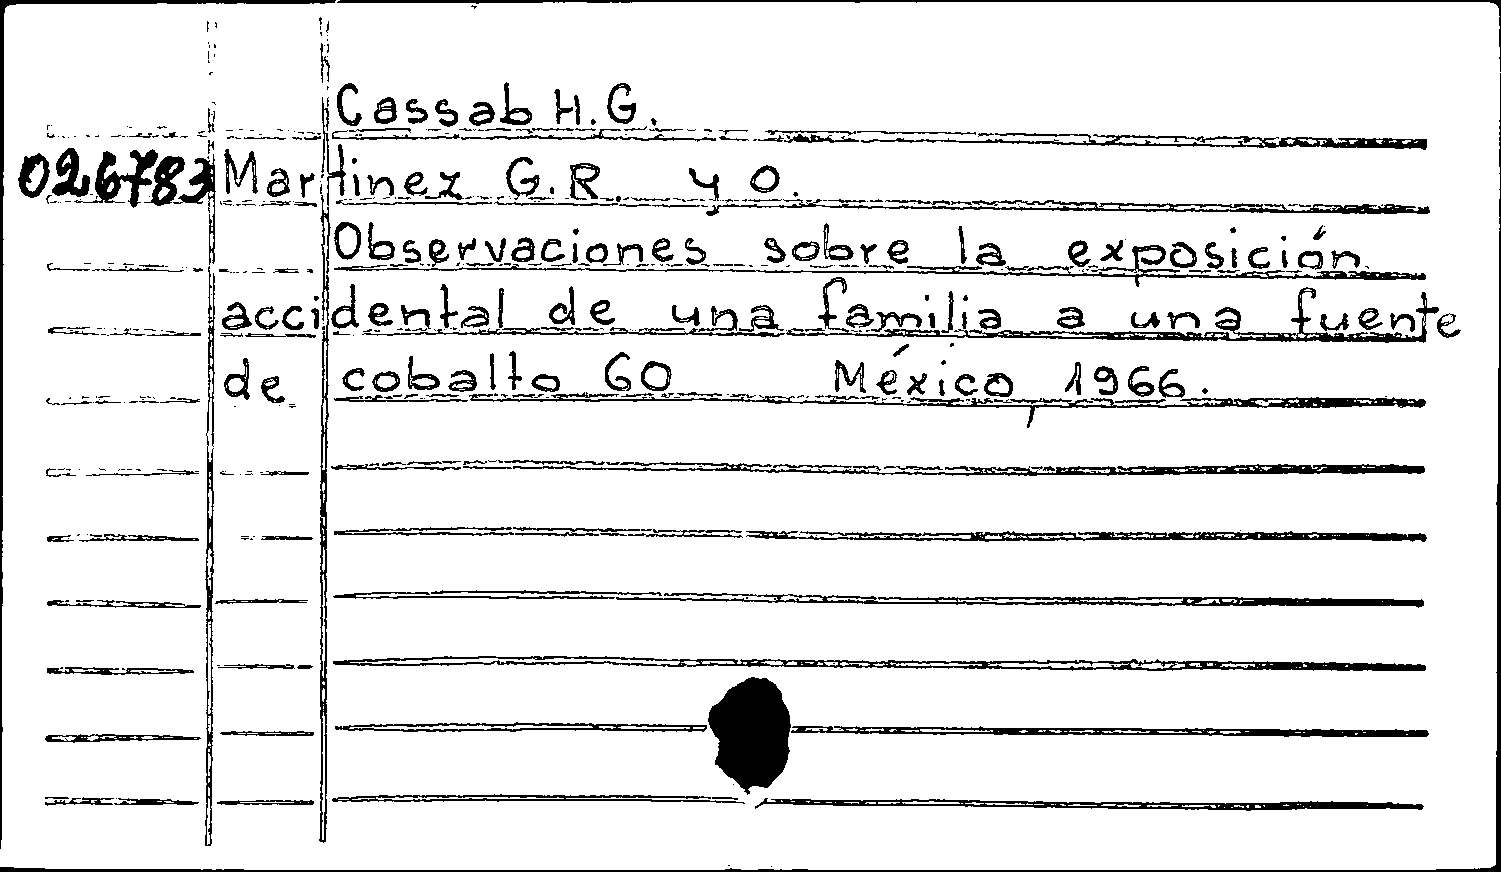 Cassab H.G.
026783 Martinez G.R. y o.
Observaciones sobre la exposición
accidental de una familia a una fuente
de cobalto 60 México, 1966.